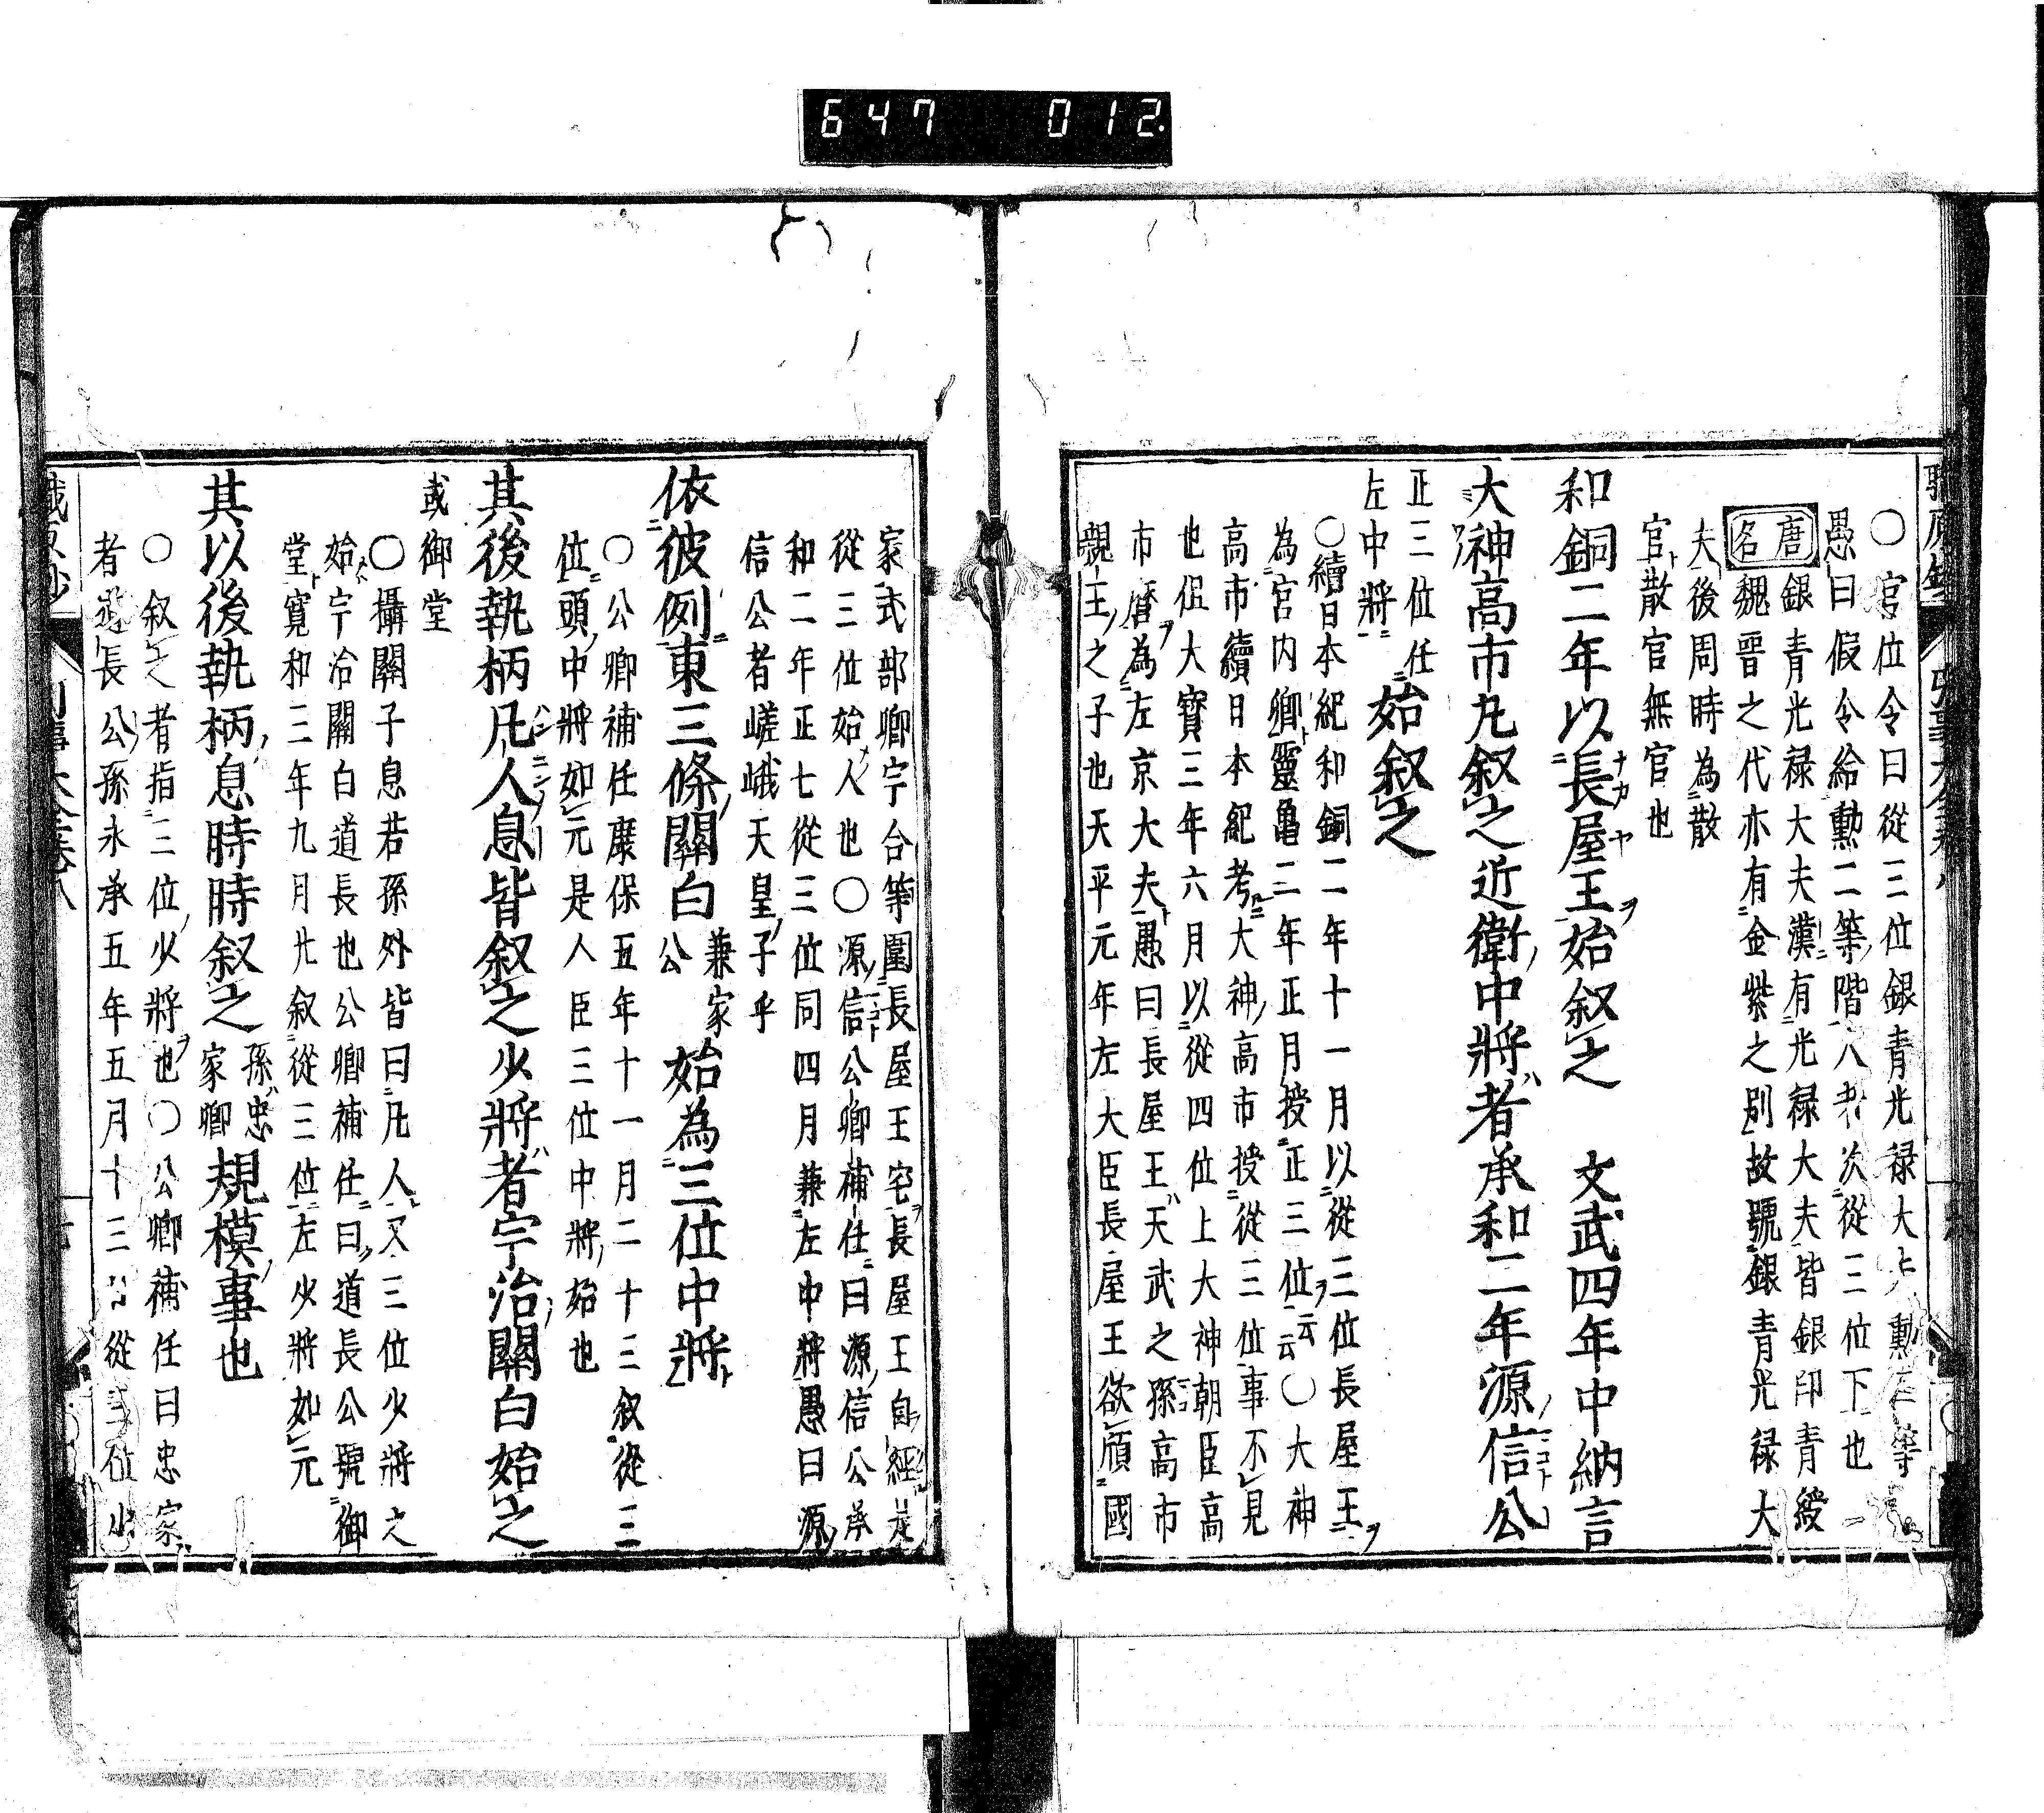 647 012
○官位令曰從三位銀青光禄大夫勳二等
愚曰假令給勳二等階八者次從三位下也
唐名
銀青光禄大夫漢有光禄大夫皆銀印青綬
魏晋之代亦有金紫之別故號銀青光禄大
夫後周時為散
官散官無官也
和銅二年以長屋王始叙之 文武四年中納言
大神高市丸叙之近衛中將者承和二年源信公
正三位任
左中將 始叙之
○續日本紀和銅二年十一月以從三位長屋王
為宮内卿靈亀二年正月授正三位云云○大神
高市續日本紀考大神高市授從三位事不見
也但大寳三年六月以從四位上大神朝臣高
市麿為左京大夫愚曰長屋王天武之孫高市
親王之子也天平元年左大臣長屋王欲傾國
家式部卿宇合等圍長屋王宅長屋王自經是
從三位始人也○源信公卿補任曰源信公承
和二年正七從三位同四月兼左中將愚曰源
信公者嵯峨天皇子乎
依彼例東三條關白兼家公始為三位中將
○公卿補任康保五年十一月二十三叙從三
位頭中將如元是人臣三位中將始也
其後執柄凡人息皆叙之少將者宇治關白始之
或御堂
○攝關子息若孫外皆曰凡人又三位少將之
始宇治關白道長也公卿補任曰道長公號御
堂寛和三年九月廿叙從三位左少將如元
其以後執柄息時時叙之孫忠家卿規模事也
○叙之者指三位少將也○公卿補任曰忠家
者道長公孫永承五年五月十三日從三位少